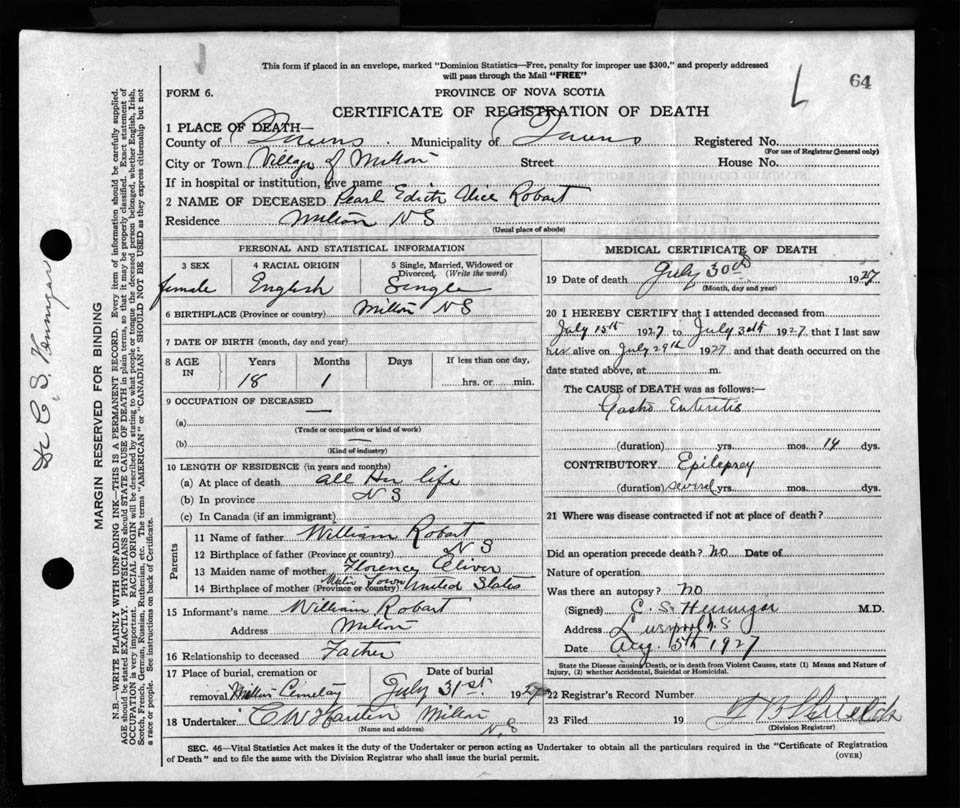 This form if placed in an envelope, marked "Dominion Statistics—Free, penalty for improper use $300," and properly addressed
will pass through the Mail "FREE"
64
FORM 6.
PROVINCE OF NOVA SCOTIA
CERTIFICATE OF REGISTRATION OF DEATH
1 PLACE OF DEATH—
County of Queens Municipality of Queens Registered No.
(For use of Registrar General only)
City or Town Village of Milton Street House No.
If in hospital or institution, give name
2 NAME OF DECEASED Pearl Edith Alice Robart
Residence Milton N S
(Usual place of abode)
PERSONAL AND STATISTICAL INFORMATION
3 SEX 4 RACIAL ORIGIN 5 Single, Married, Widowed or Divorced, (Write the word)
female English Single
6 BIRTHPLACE (Province or country) Milton N S
7 DATE OF BIRTH (month, day and year)
8 AGE IN Years Months Days If less than one day,
18 1 hrs. or min.
9 OCCUPATION OF DECEASED
(a) —
(Trade or occupation or kind of work)
(b) —
(Kind of industry)
10 LENGTH OF RESIDENCE (in years and months)
(a) At place of death all Her life
(b) In province N S
(c) In Canada (if an immigrant)
Parents
11 Name of father William Robart
12 Birthplace of father (Province or country) N S
13 Maiden name of mother Florence Oliver
14 Birthplace of mother (Province or country) United States
15 Informant's name William Robart
Address Milton
16 Relationship to deceased Father
17 Place of burial, cremation or removal Milton Cemetary Date of burial July 31st. 1927
18 Undertaker C W Milton N, S
(Name and address)
MEDICAL CERTIFICATE OF DEATH
19 Date of death July 30th 1927
(Month, day and year)
20 I HEREBY CERTIFY that I attended deceased from
July 15th 1927 to July 30th 1927, that I last saw
her alive on July 29th 1927 and that death occurred on the
date stated above, at m.
The CAUSE of DEATH was as follows:—
Gastro Enteritis
(duration) yrs. mos. 14 dys.
CONTRIBUTORY Epilepsey
(duration) several yrs. mos. dys.
21 Where was disease contracted if not at place of death?
Did an operation precede death? no Date of
Nature of operation
Was there an autopsy? no
(Signed) C. S. Hennigar M.D.
Address Liverpool N.S
Date Aug. 5th 1927
State the Disease causing Death, or in death from Violent Causes, state (1) Means and Nature of
Injury, (2) whether Accidental, Suicidal or Homicidal.
22 Registrar's Record Number
23 Filed 19
(Division Registrar)
SEC. 46—Vital Statistics Act makes it the duty of the Undertaker or person acting as Undertaker to obtain all the particulars required in the "Certificate of Registration
of Death" and to file the same with the Division Registrar who shall issue the burial permit.
(OVER)
MARGIN RESERVED FOR BINDING
N.B.—WRITE PLAINLY WITH UNFADING INK—THIS IS A PERMANENT RECORD. Every item of information should be carefully supplied.
AGE should be stated EXACTLY. PHYSICIANS should STATE CAUSE OF DEATH in plain terms, so that it may be properly classified. Exact statement of
OCCUPATION is very important. RACIAL ORIGIN will be described by stating to what people or tongue the deceased person belonged, whether English, Irish,
Scotch, French, German, Russian, Ruthenian, etc. The terms "AMERICAN" or "CANADIAN" SHOULD NOT BE USED as they express citizenship but not
a race or people. See instructions on back of Certificate.
Dr C. S. Hennigar